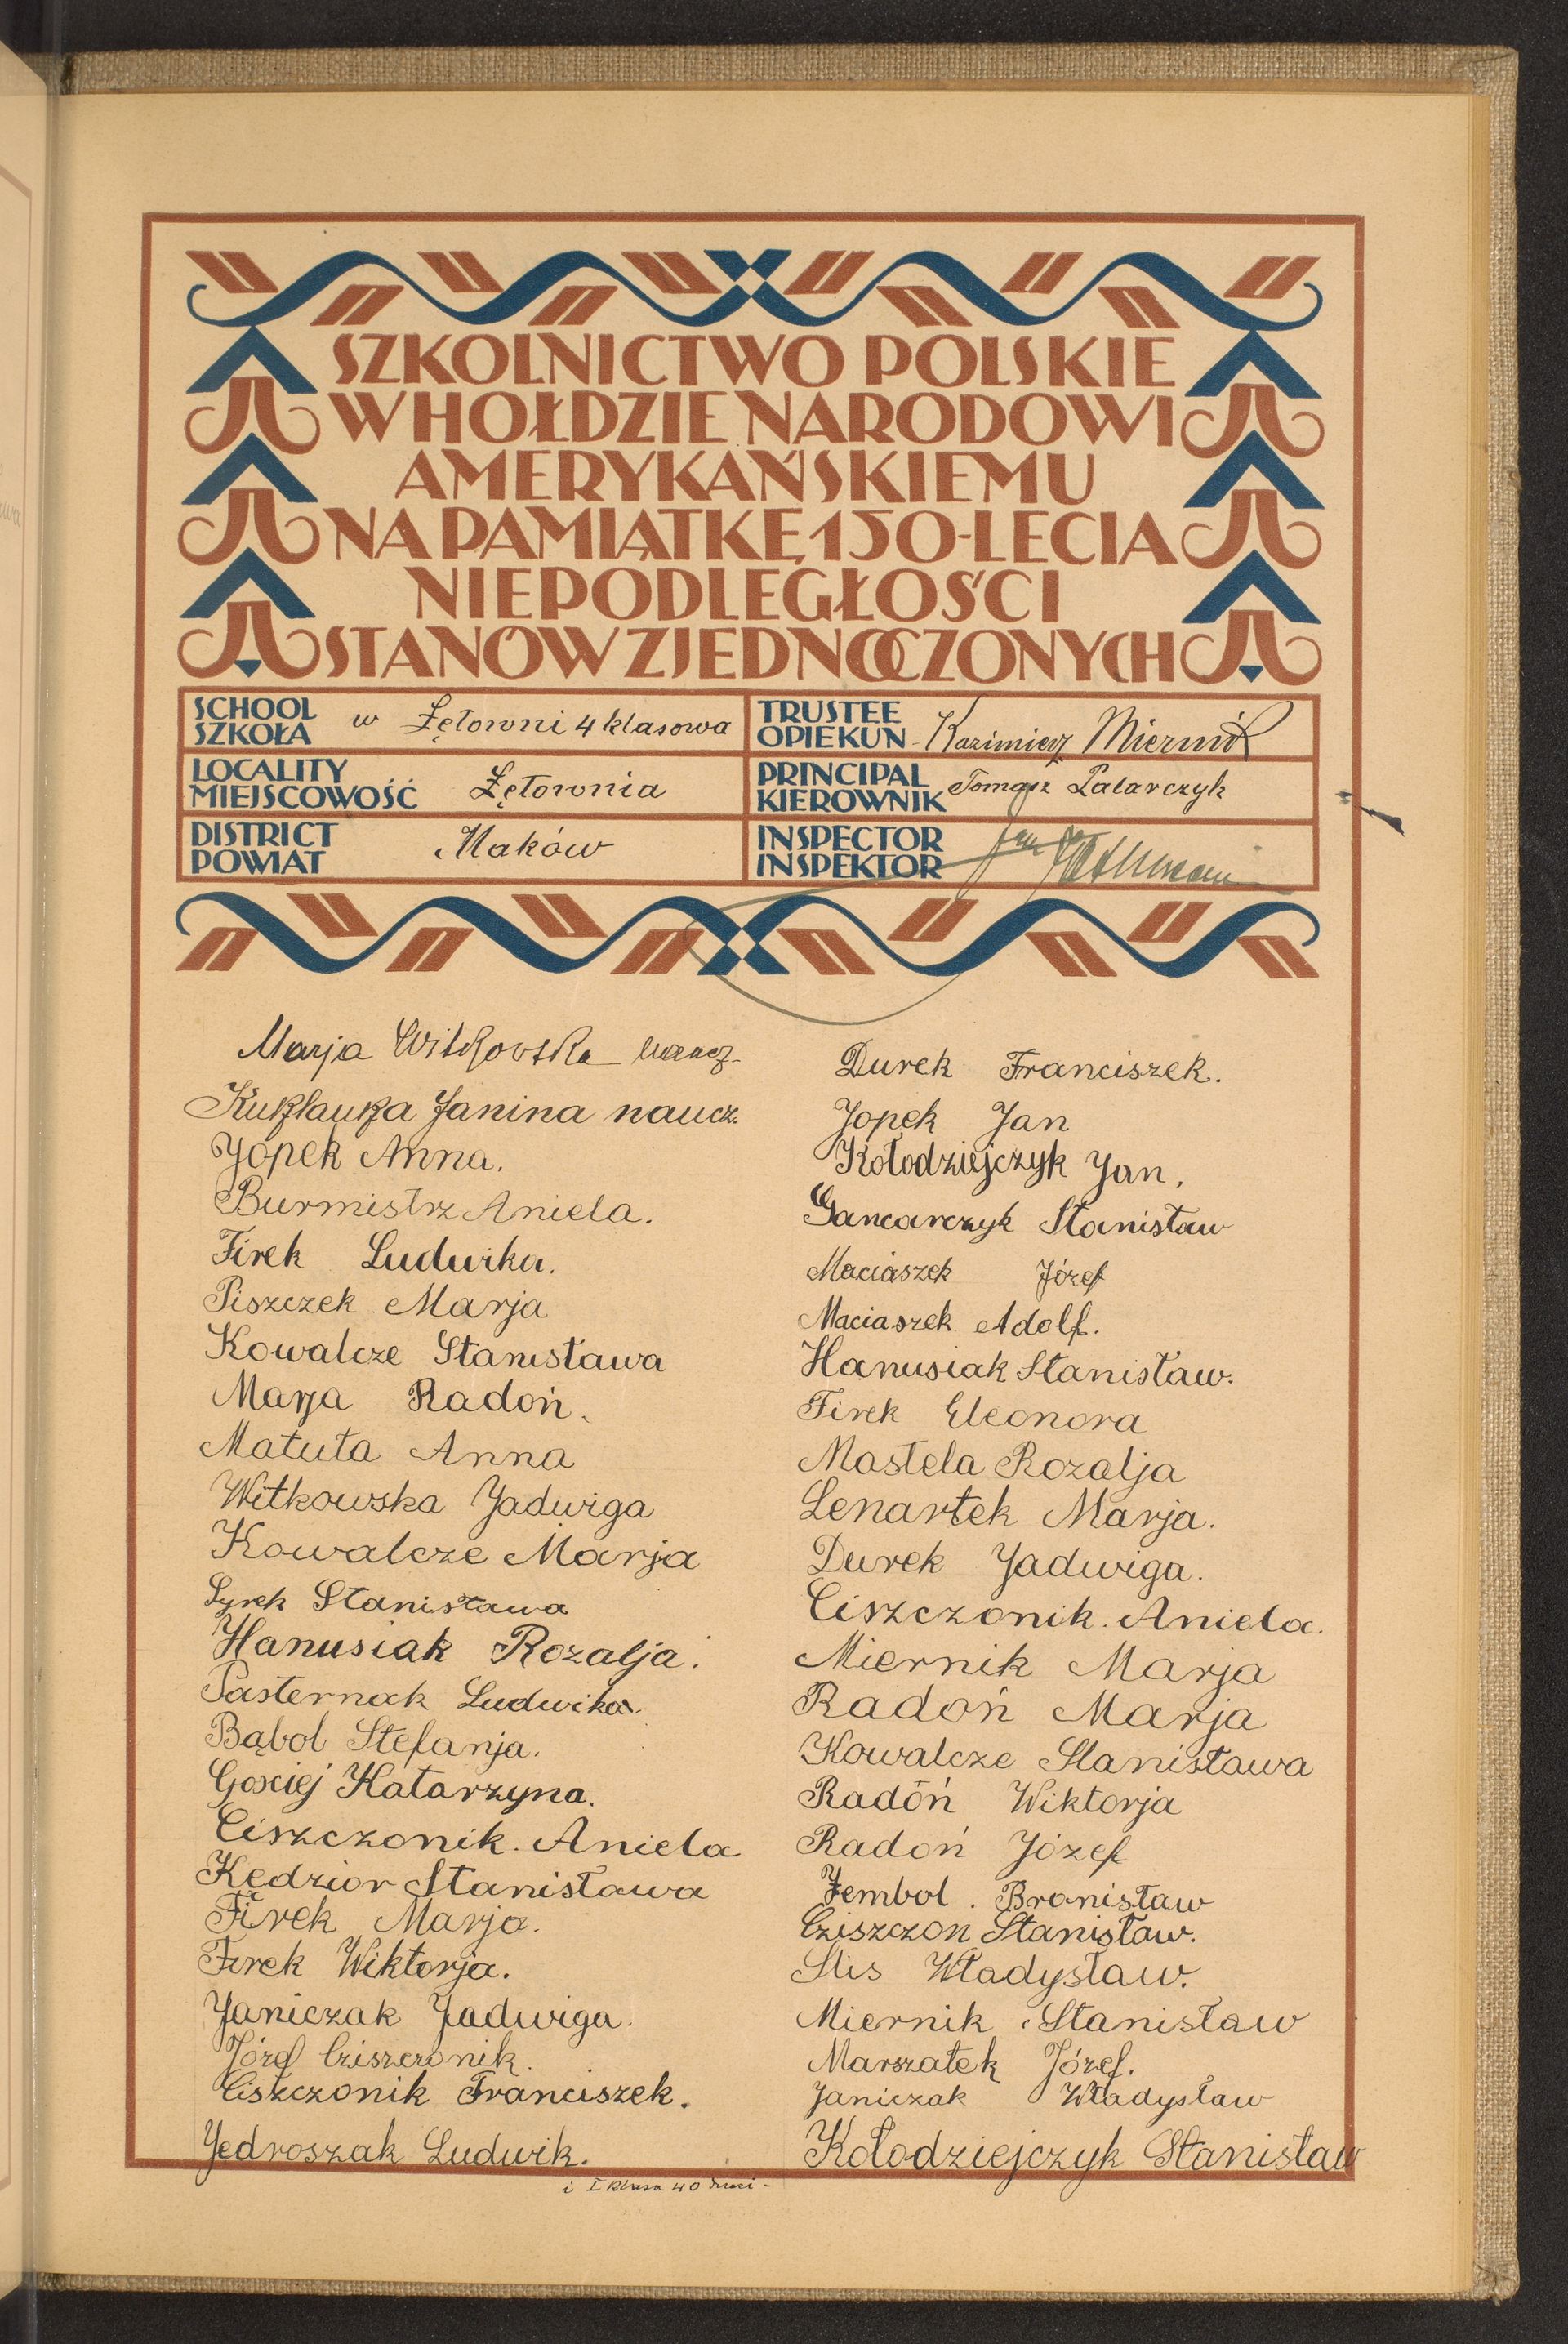 SZKOLNICTWO POLSKIE
W HOŁDZIE NARODOWI
AMERYKAŃSKIEMU
NA PAMIĄTKĘ 150-LECIA
NIEPODLEGŁOŚCI
STANÓW ZJEDNOCZONYCH
SCHOOL
SZKOŁA w Zętowni 4 klasowa
TRUSTEE
OPIEKUN Kazimierz Miernik
LOCALITY
MIEJSCOWOŚĆ Zętownia
PRINCIPAL
KIEROWNIK Tomasz
DISTRICT
POWIAT Maków
INSPECTOR
INSPEKTOR Jan
Marja Witkowska naucz.
Janina naucz.
Jopek Anna.
Burmistrz Aniela.
Firek Ludwika.
Piszczek Marja
Kowalcze Stanisława
Marja Radoń.
Matuta Anna
Witkowska Jadwiga
Kowalcze Marja
Syrek Stanisława
Hanusiak Rozalja.
Pasternak Ludwika.
Bąbol Stefanja.
Gościej Katarzyna.
Ciszczonik. Aniela
Kędzior Stanisława
Firek Marja.
Firek Wiktorja.
Janiczak Jadwiga.
Józef Cziszczonik.
Ciszczonik Franciszek.
Jedroszak Ludwik.
Durek Franciszek.
Jopek Jan
Kołodziejczyk Jan.
Gancarczyk Stanisław
Maciaszek Józef
Maciaszek Adolf.
Hanusiak Stanisław.
Firek Eleonora
Mastela Rozalja
Lenartek Marja.
Durek Jadwiga.
Ciszczonik. Aniela.
Miernik Marja
Radoń Marja
Kowalcze Stanisława
Radoń Wiktorja
Radoń Józef
Zembol. Bronisław
Cziszczon Stanisław.
Slis Władysław.
Miernik Stanisław
Marszałek Józef.
Janiczak Władysław
Kołodziejczyk Stanisław
i I klasa 40 dzieci -